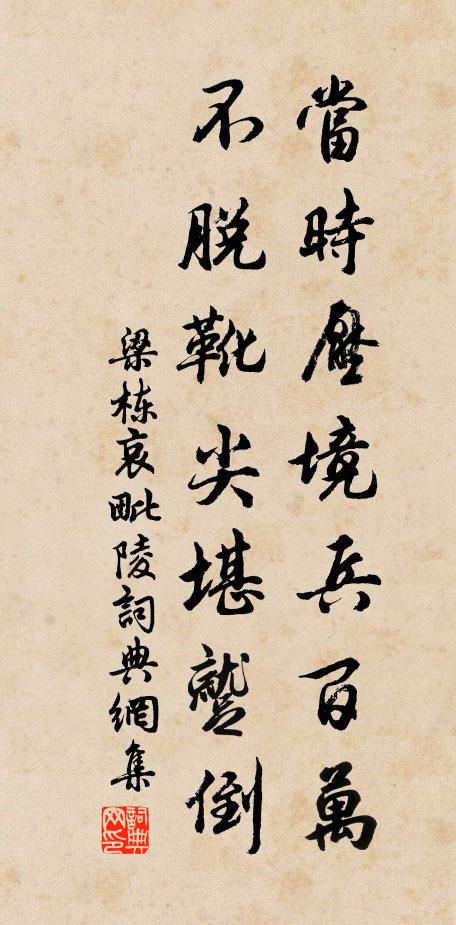 當時壓境兵百萬
不脫靴尖堪蹵倒
梁栋哀毗陵詞典網集
詞典网印